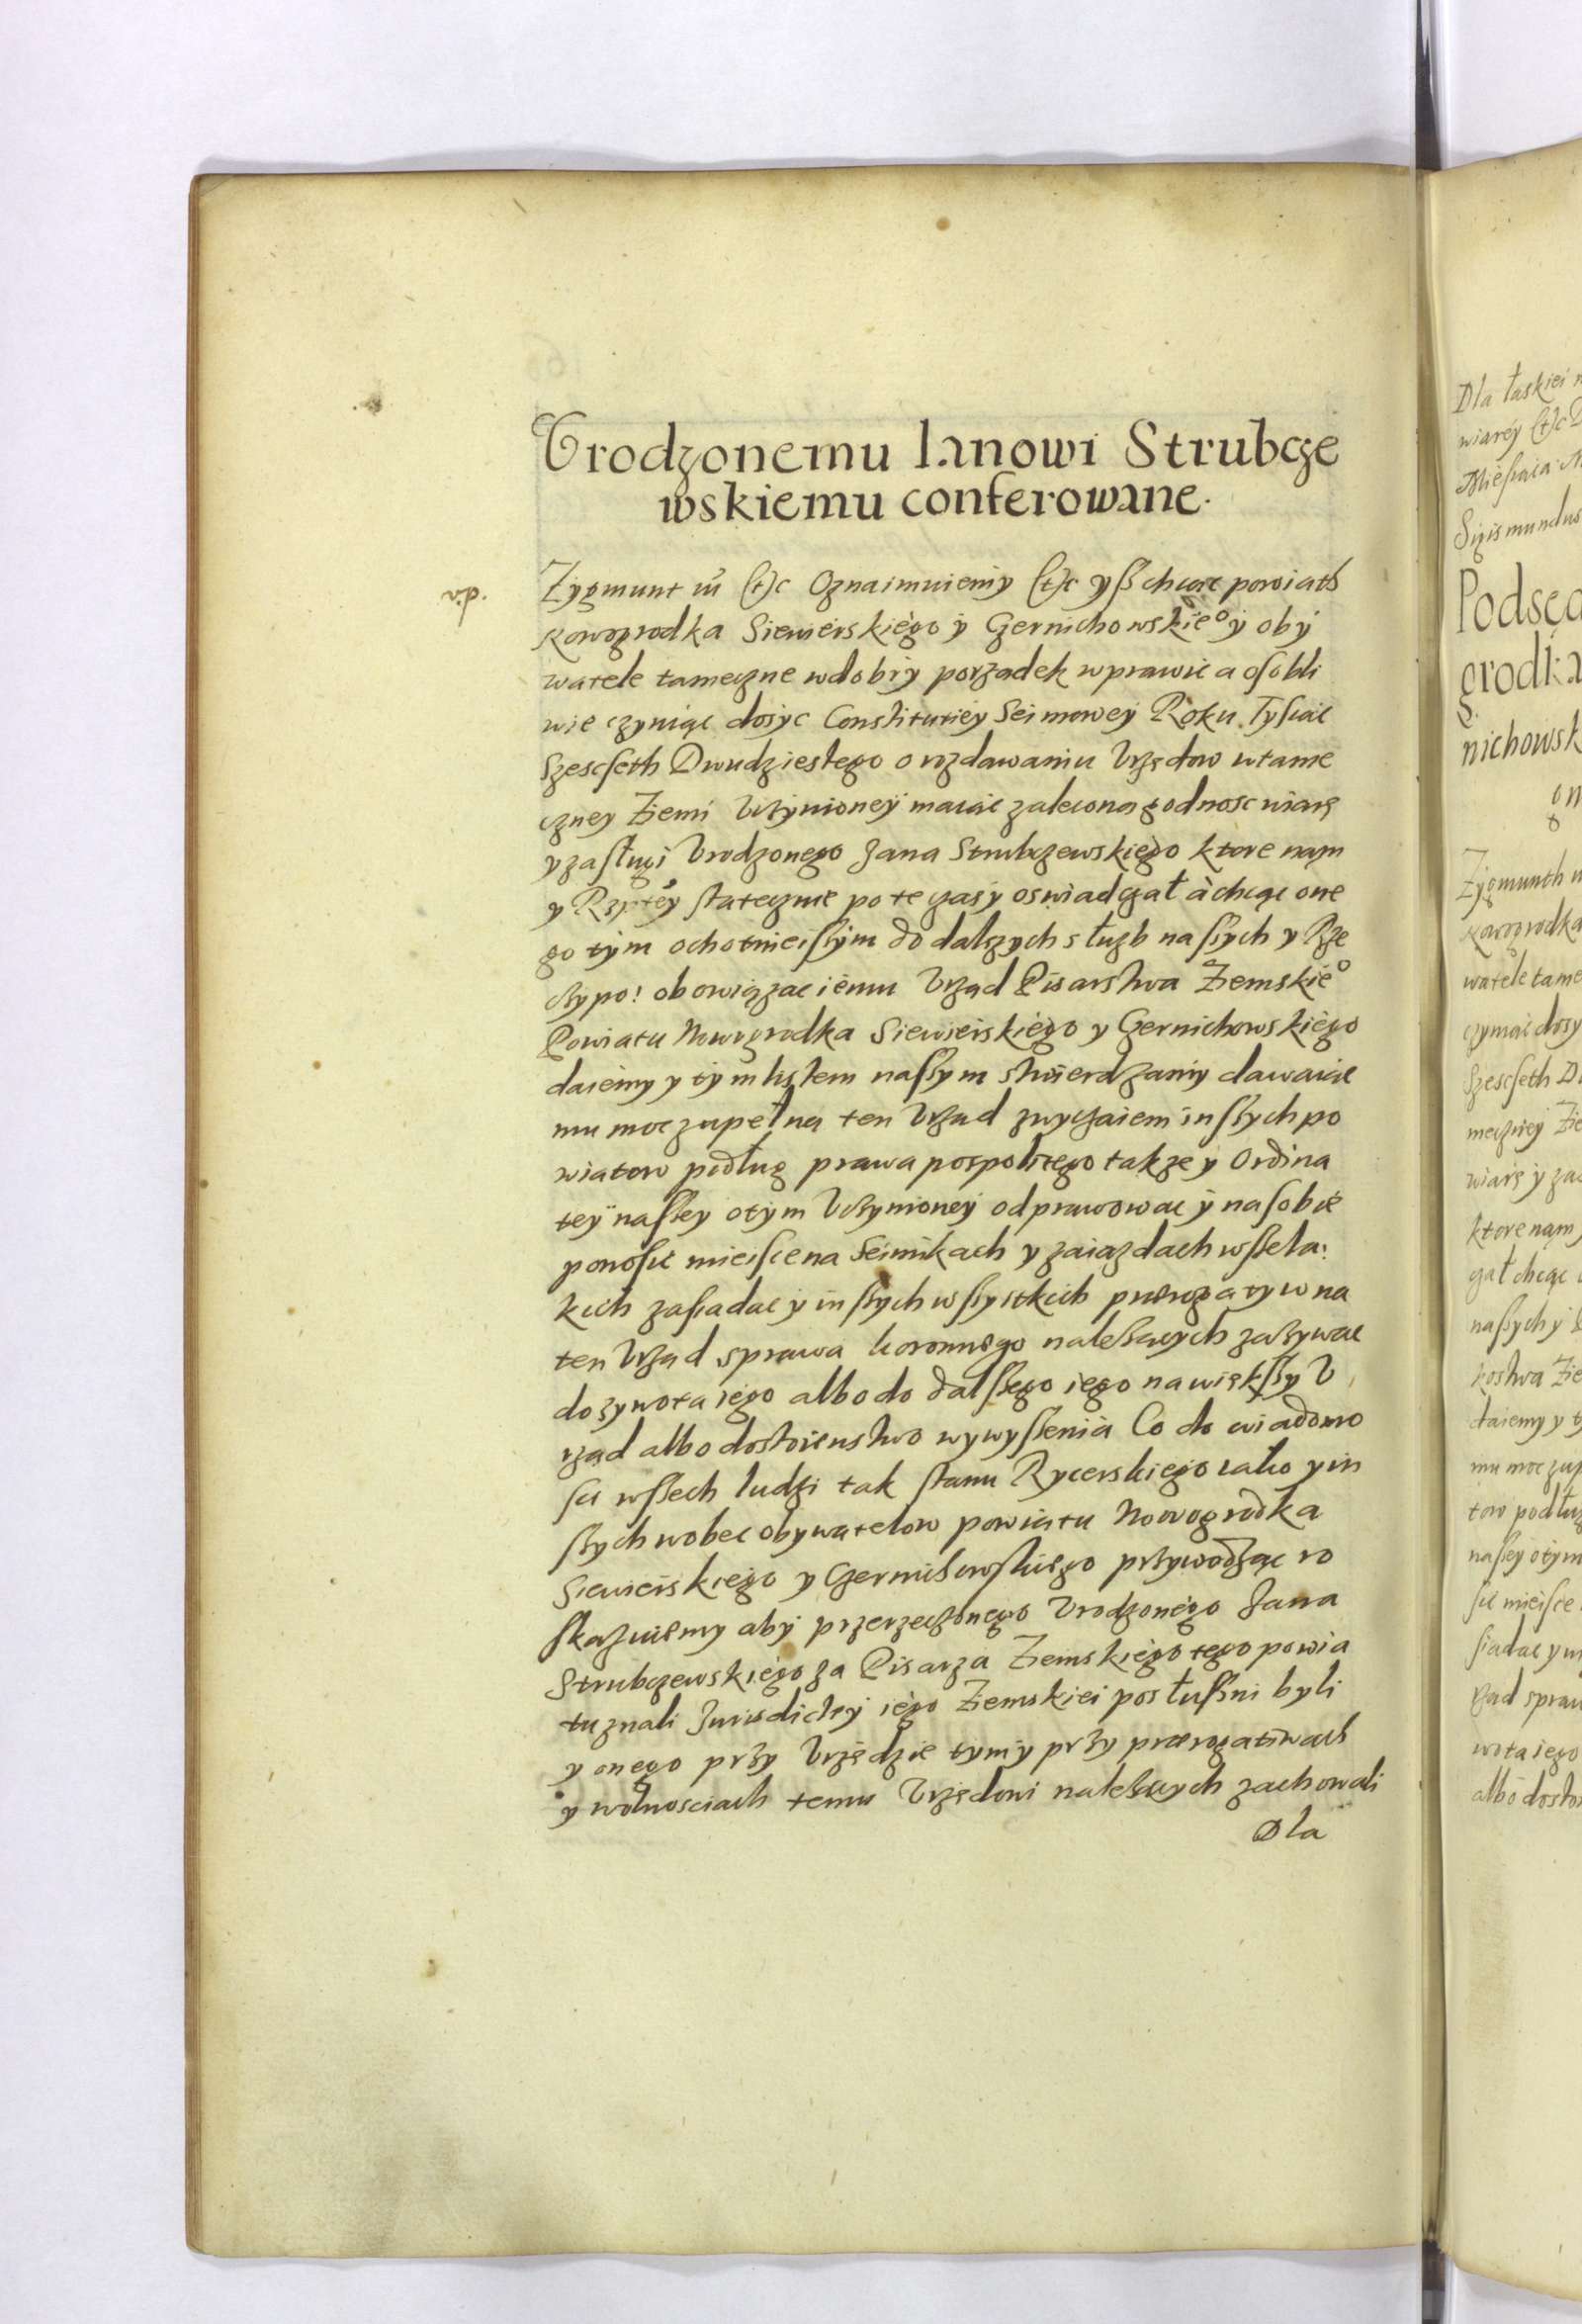 Urodzonemu Janowi Strubcze
wskiemu conferowane.
Zygmunt III etc Oznaimuiemy etc yß chcąc powiath
Nowogrodka Siewierskiego y Czernichowskieº y oby
watele tameczne w dobry porządek wprawic a osobli
wie czyniąc dosyc Constitutiey Seimowey Roku Tysiąc
Szescseth Dwudziestego o rozdawaniu Urzędow w tame
czney Ziemi Uczynioney maiąc zaleconą godnosc wiarę
y zasługi Urodzonego Jana Strubczewskiego ktore nąm
y Rzptey statecznie po te czasy oswiadczał à chcąc one
go tym ochotnieißym do dalszych służb naßych y Rze
czypo: obowiązac iemu Urząd Pisarstwa Ziemskieº
Powiatu Nowogrodka Siewierskiego y Czernichowskiego
daiemy y tym listem naßym stwierdzamy dawaiąc
mu moc zupełną ten Urząd zwyczaiem inßych po
wiatow podług prawa pospolitego takze y Ordina
tey naßey o tym Uczynioney odprawowac y na sobie
ponosic mieisce na Seimikach y zaiazdach wßela:
kich zasiadac y inßych wßystkich prerogatyw na
ten Urząd sprawa koronnego należących zażywac
do żywota iego albo do dalßego iego na więkßy U
rząd albo dostoienstwo wywyßenia Co do wiadomo
sci wßech ludzi tak stanu Rycerskiego iako y in
ßych wobec obywatelow powiatu Nowogrodka
Siewierskiego y Czernichowskiego przywodząc ro
skazuiemy aby przerzeczonego Urodzonego Jana
Strubczewskiego za Pisarza Ziemskiego tego powia
tu znali Jurisdictiey iego Ziemskiei posłußni byli
y onego przy Urzędzie tym y przy praerogatiwach
y wolnosciach temu Urzędowi należących zachowali
Dla
Dla łaskiei
wiarey etc
Miesiąca
Sigismundus
Podsęd
grodka
nichowsk
Zygmunth
Nowogrodka
watele tame
czyniąc dosy
Szescseth D
meczney Zie
wiarę y za
ktore nąm
czał chcąc
naßych y
daiemy y ty
mu moc zup
tow podług
naßey o tym
sic mieisce
siadac y in
rząd spraw
wota iego
albo dosto